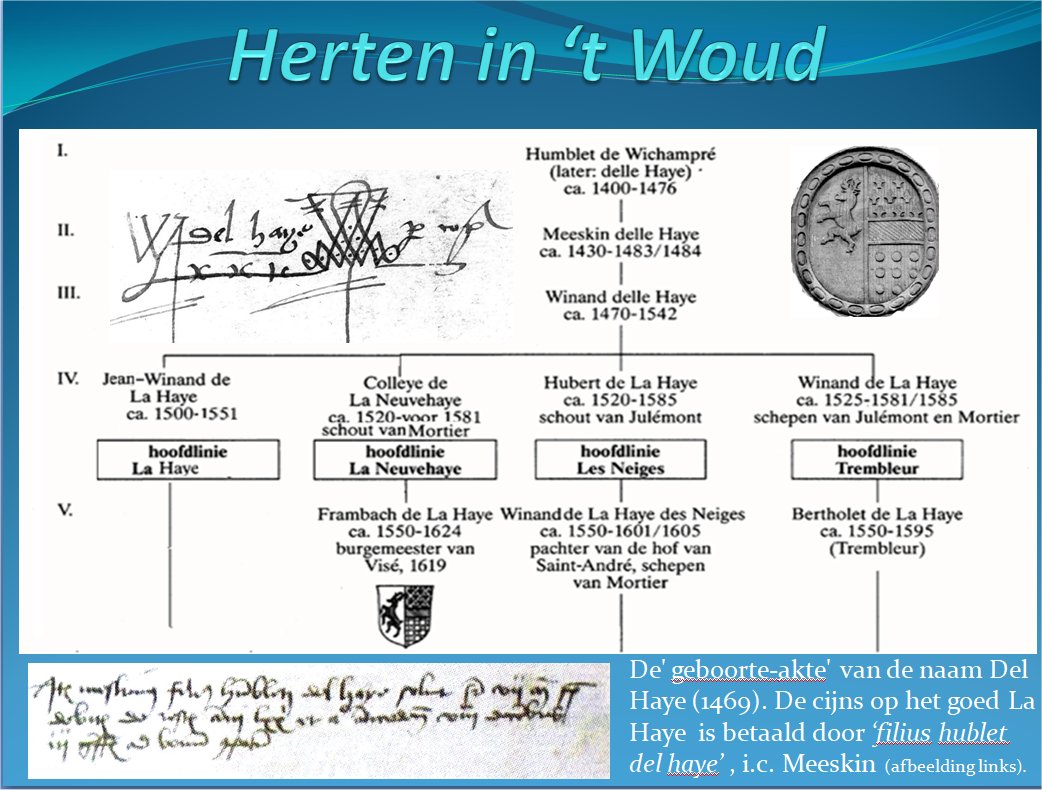 Herten in ‘t Woud
I.
Humblet de Wichampré
(later: delle Haye)
ca. 1400-1476
II.
Meeskin delle Haye
ca. 1430-1483/1484
III.
Winand delle Haye
ca. 1470-1542
del haye
IV.
Jean-Winand de
La Haye
ca. 1500-1551
Colleye de
La Neuvehaye
ca. 1520-voor 1581
schout van Mortier
Hubert de La Haye
ca. 1520-1585
schout van Julémont
Winand de La Haye
ca. 1525-1581/1585
schepen van Julémont en Mortier
hoofdlinie
La Haye
hoofdlinie
La Neuvehaye
hoofdlinie
Les Neiges
hoofdlinie
Trembleur
V.
Frambach de La Haye
ca. 1550-1624
burgemeester van
Visé, 1619
Winand de La Haye des Neiges
ca. 1550-1601/1605
pachter van de hof van
Saint-André, schepen
van Mortier
Bertholet de La Haye
ca. 1550-1595
(Trembleur)
De' geboorte-akte' van de naam Del
Haye (1469). De cijns op het goed La
Haye is betaald door ‘filius hublet
del haye’ , i.c. Meeskin (afbeelding links).